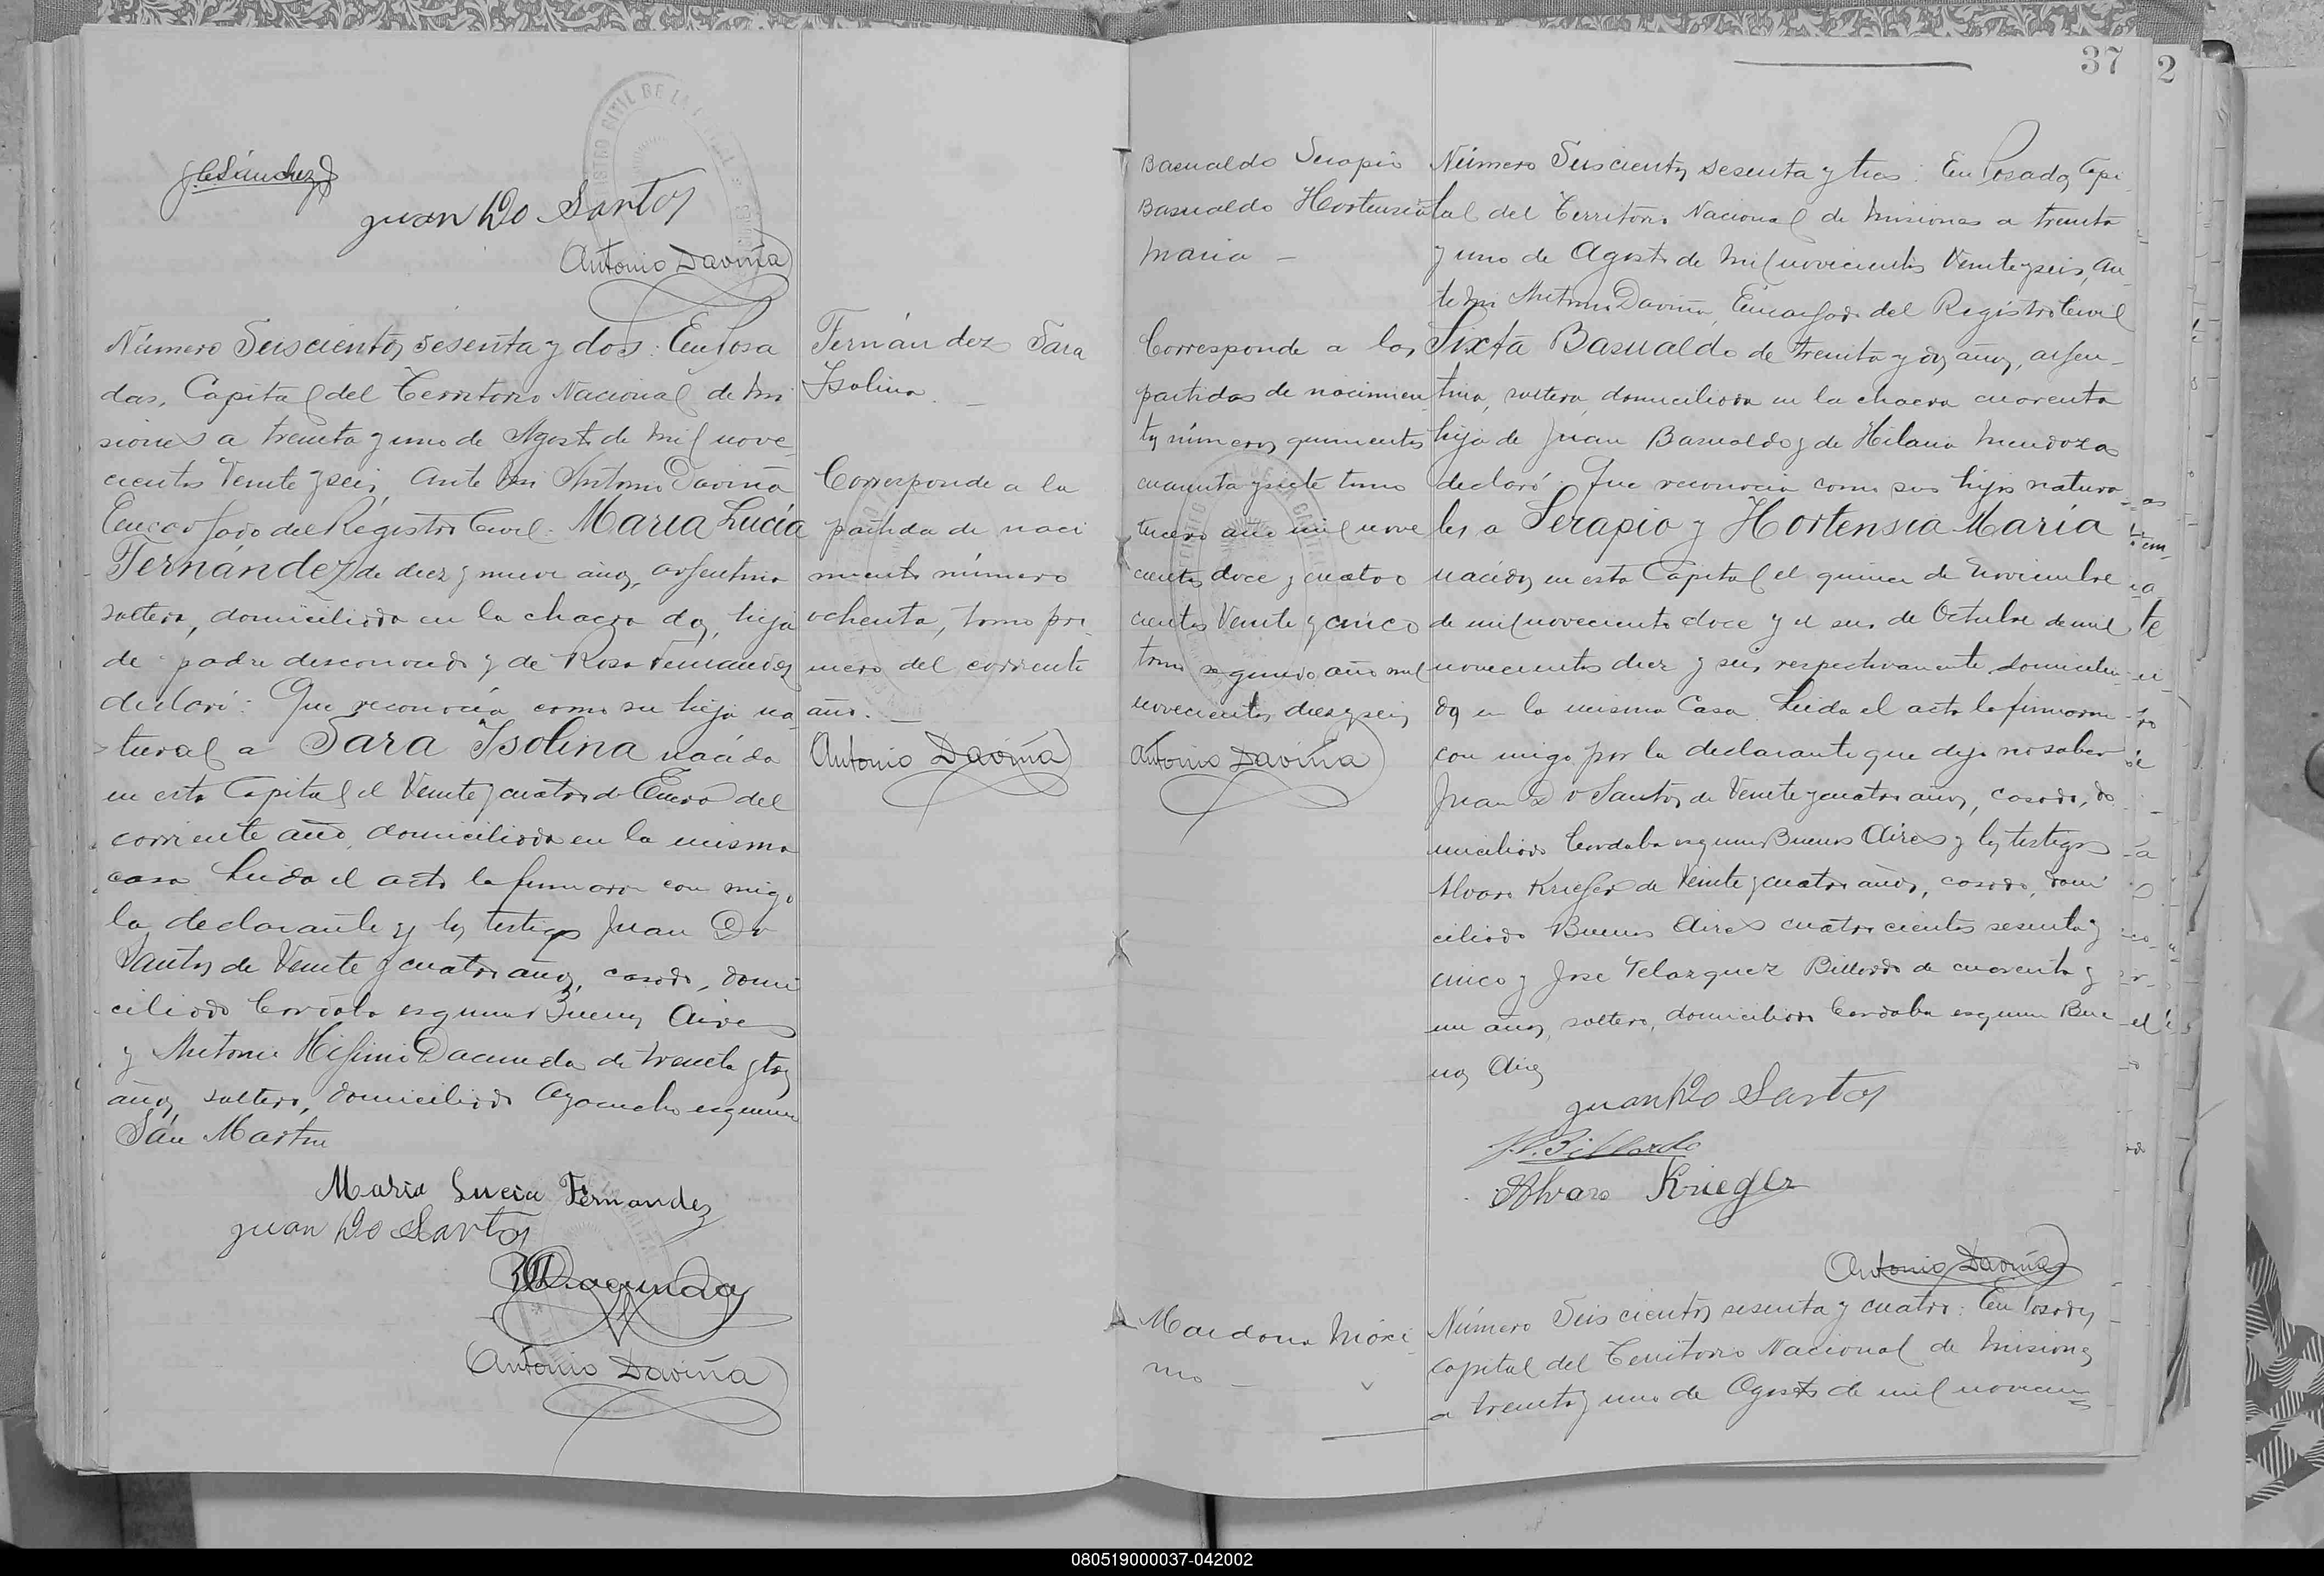 J.C. Sánchez
Juan Do Santos
Antonio Daviña
Número Seiscientos sesenta y dos: En Posa
das, Capital del Territorio Nacional de Mi
siones a treinta y uno de Agosto de mil nove
cientos Veinte y seis, ante mi Antonio Daviña
Encargado del Registro Civil: María Lucía
Fernández de diez y nueve años, argentina
soltera, domiciliada en la chacra dos, hija
de padre desconocido y de Rosa Fernandez
declaró: Que reconocía como su hija na
tural a Sara Isolina nacida
en esta Capital el Veinte y cuatro de Enero del
corriente año, domiciliada en la misma
casa. Leida el acta la firmaron con migo
la declarante y los testigos Juan Do
Santos de Veinte y cuatro años, casado, domi
ciliado Cordoba esquina Buenos Aires
y Antonio Higinio Dacunda de treinta y tres
años, soltero, domiciliado Ayacucho esquina
San Martin
Maria Lucia Fernandez
Juan Do Santos
Dacunda
Antonio Daviña
Fernández Sara
Isolina. —
Corresponde a la
partida de naci
miento número
ochenta, tomo pri
mero del corriente
año. —
Antonio Daviña
37
2
Basualdo Serapio
Basualdo Hortensia
Maria —
Corresponde a las
partidas de nacimien
tos números quinientos
cuarenta y siete tomo
tercero año mil nove
cientos doce y cuatro
cientos Veinte y cinco
tomo segundo año mil
novecientos diez y seis
Antonio Daviña
Número Seiscientos sesenta y tres: En Posadas, Capi
tal del Territorio Nacional de Misiones a treinta
y uno de Agosto de mil novecientos Veinte y seis, an
te mi Antonio Daviña, Encargado del Registro Civil
Sixta Basualdo de treinta y dos años, argen
tina, soltera, domiciliada en la chacra cuarenta
hija de Juan Basualdo y de Hilaria Mendoza
declaró: Que reconocía como sus hijos natura
les a Serapio y Hortensia María
nacidos en esta Capital el quince de Noviembre
de mil novecientos doce y el seis de Octubre de mil
novecientos diez y seis respectivamente, domicilia
dos en la misma Casa. Leida el acta la firmaron
con migo por la declarante que dijo no saber
Juan Do Santos de Veinte y cuatro años, casado, do
miciliado Cordoba esquina Buenos Aires y los testigos
Alvaro Krieger de Veinte y cuatro años, casado, domi
ciliado Buenos Aires cuatro cientos sesenta y
cinco y Jose Velazquez Billordo de cuarenta y
un años, soltero, domiciliado Cordoba esquina Bue
nos Aires
Juan Do Santos
J.V. Billordo
Alvaro Krieger
Antonio Daviña
Maidana Máxi
mo —
Número Seis cientos sesenta y cuatro: En Posadas,
Capital del Territorio Nacional de Misiones
a treinta y uno de Agosto de mil novecien
080519000037-042002